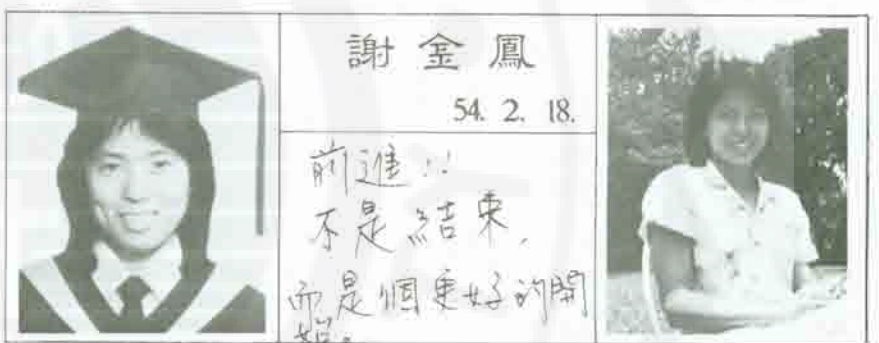 謝金鳳
54. 2. 18.
前進!!
不是結束,
而是個更好的開
始。